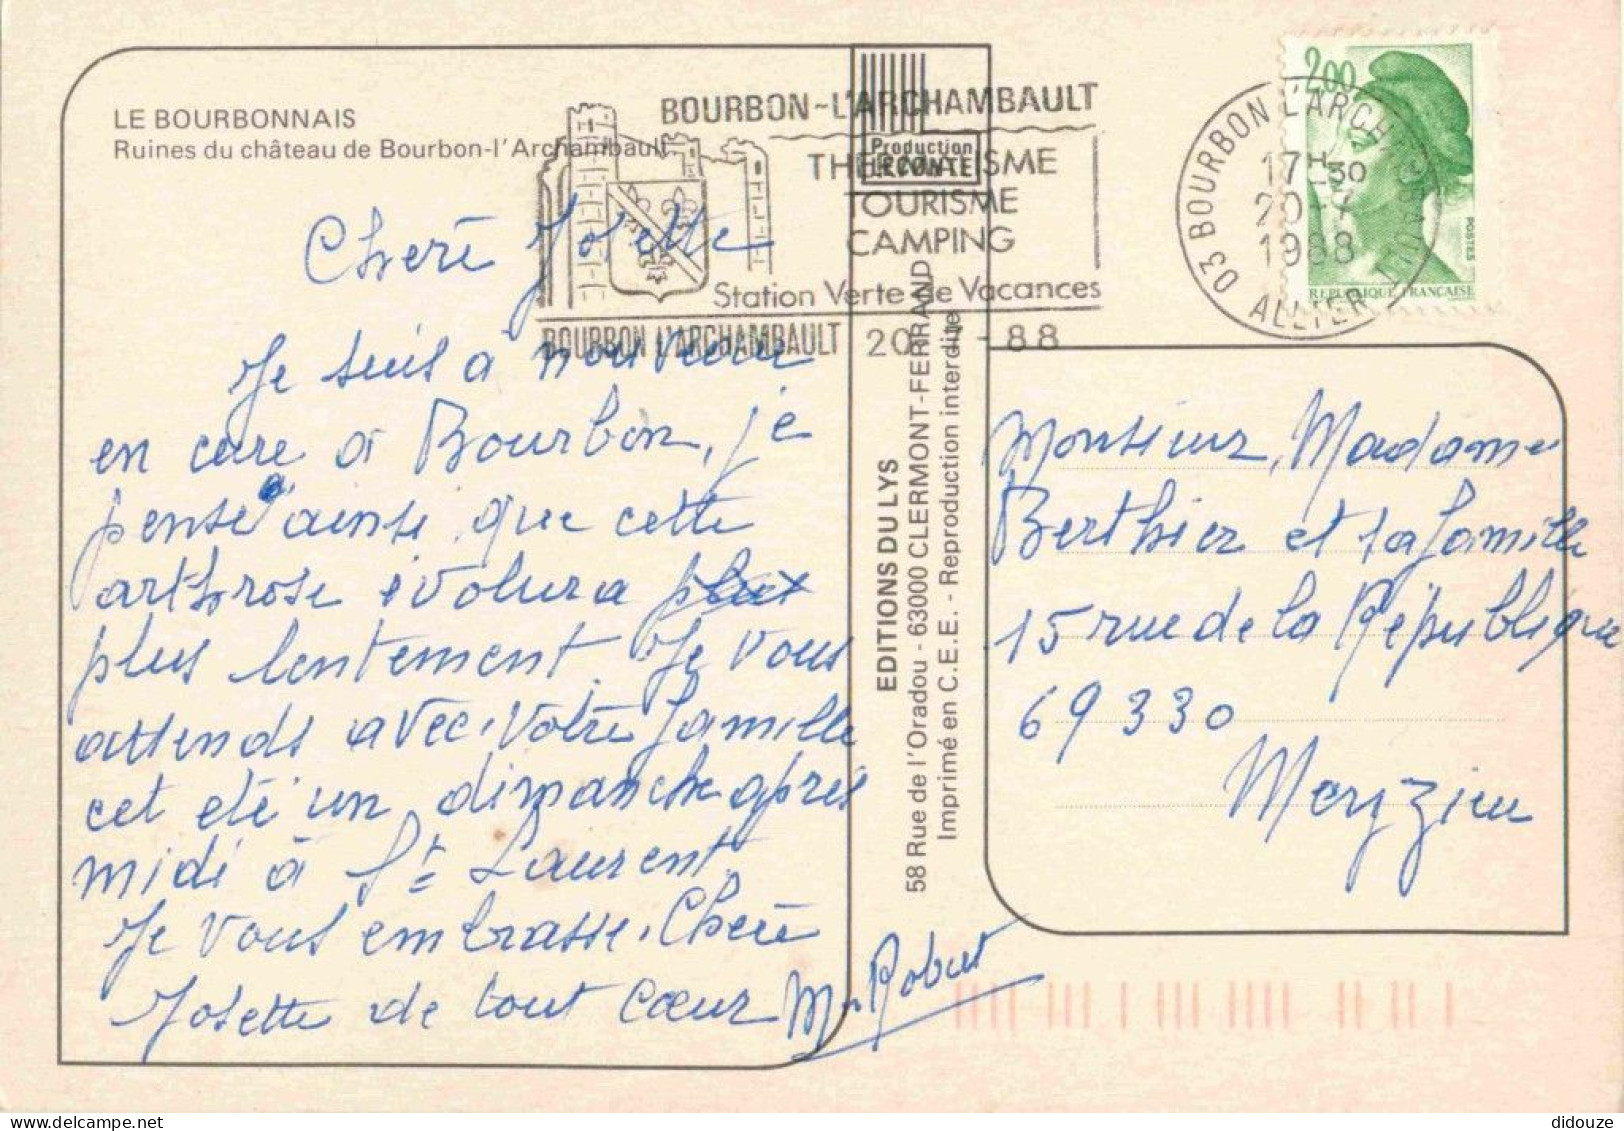 LE BOURBONNAIS
Ruines du château de Bourbon-l'Archambault
BOURBON~L'ARCHAMBAULT
THERMALISME
TOURISME
CAMPING
Station Verte de Vacances
BOURBON L'ARCHAMBAULT 20 -88
Production
LECONTE
2,00
POSTES
REPUBLIQUE FRANÇAISE
03 BOURBON L'ARCHAMBAULT
17H30
20-7
1988
ALLIER
Cherè Josette
Je suis à nouveau
en cure à Bourbon, je
pense ainsi que cette
arthrose èvoluera
plus lentement. Je vous
attends avec votre famille
cet eté un dimanche après
midi à St Laurent.
Je vous embrasse. Cherè
Josette de tout cœur
Robert
EDITIONS DU LYS
58 Rue de l'Oradou - 63000 CLERMONT-FERRAND
Imprimé en C.E.E. - Reproduction interdite
Monsieur, Madame
Berthier et sa famille
15 rue de la République
69330
Meyzieu
didouze